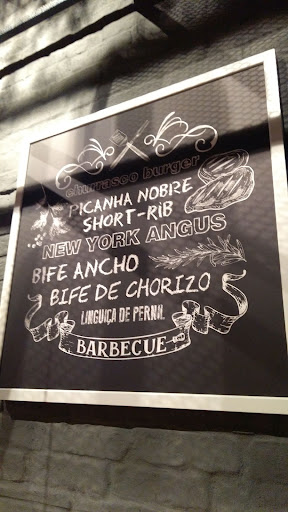 churrasco burger
PICANHA NOBRE
SHORT-RIB
NEW YORK ANGUS
BIFE ANCHO
BIFE DE CHORIZO
LINGUIÇA DE PERNIL
BARBECUE